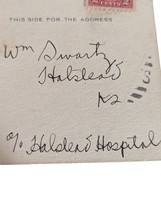 CENTS
THIS SIDE FOR THE ADDRESS
Wm Swartz
Halstead
Ks
c/o Halstead Hospital